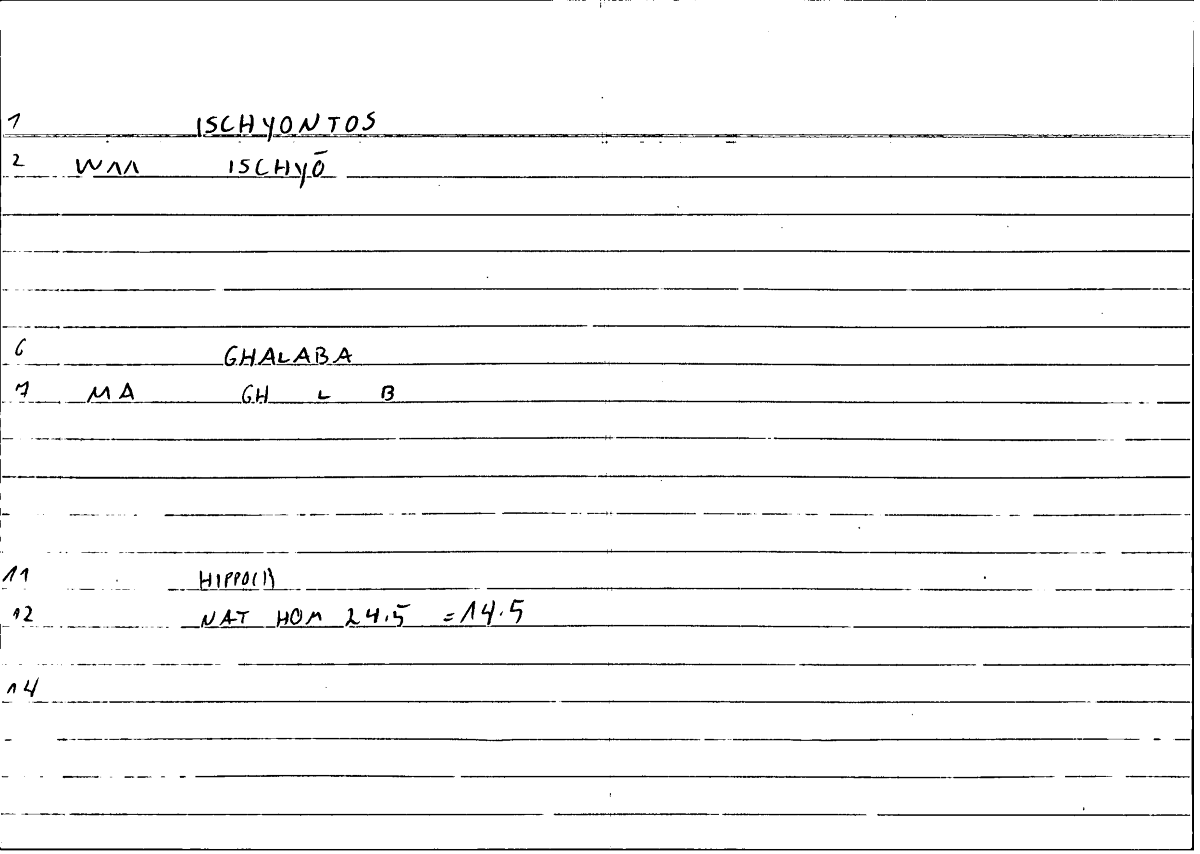 1 ISCHYONTOS
2 W11 ISCHYŌ
6 GHALABA
7 MA GH L B
11 HIPPOCR
12 NAT HOM 24.5 =14.5
14